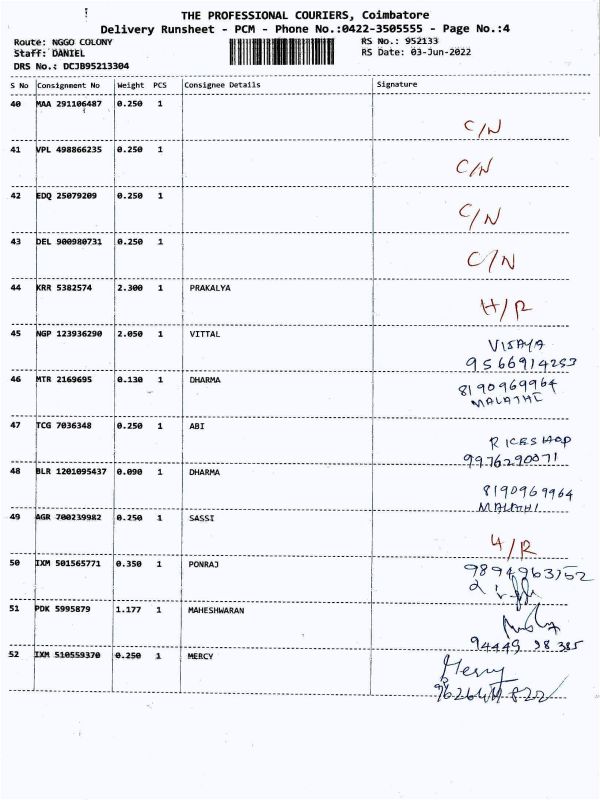 THE PROFESSIONAL COURIERS, Coimbatore
Delivery Runsheet - PCM - Phone No.:0422-3505555 - Page No.:4
Route: NGGO COLONY RS No.: 952133
Staff: DANIEL RS Date: 03-Jun-2022
DRS No.: DCJB95213304
S No Consignment No Weight PCS Consignee Details Signature
40 MAA 291106487 0.250 1
C/N
41 VPL 498866235 0.250 1
C/N
42 EDQ 25079209 0.250 1
C/N
43 DEL 900980731 0.250 1
C/N
44 KRR 5382574 2.300 1 PRAKALYA
H/R
45 NGP 123936290 2.050 1 VITTAL
VIJAYA
9566914253
46 MTR 2169695 0.130 1 DHARMA
8190969964
MALATHI
47 TCG 7036348 0.250 1 ABI
RICE SHOP
9976290071
48 BLR 1201095437 0.090 1 DHARMA
8190969964
MALATHI
49 AGR 700239982 0.250 1 SASSI
H/R
50 IXM 501565771 0.350 1 PONRAJ
9894963752
51 PDK 5995879 1.177 1 MAHESHWARAN
94449 98 385
52 IXM 510559370 0.250 1 MERCY
Mercy